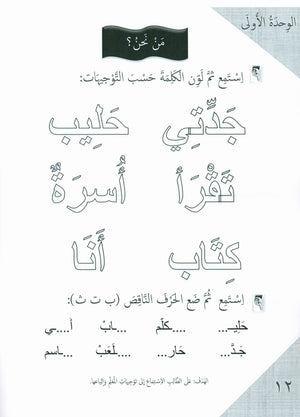 الوِحدَةُ الأُولَى
مَنْ نَحنُ؟
اِسْتَمِع ثُمَّ لَوِّن الكَلِمَةَ حَسْبَ التَّوْجِيهَات:
جَدَّتِي حَلِيب
تَقْرَأ أُسرَةٌ
كِتَاب أَنَا
اِسْتَمِع ثُمَّ ضَع الحَرْفَ النَّاقِصَ (ب ت ث):
حَلِيـ... ....كلّم ...ـابْ أ....ي
جَدَّ... حار... ...لعَبْ ...اسم
الهَدَف: عَلَى الطَّالِبِ الاِسْتِمَاع إِلى تَوْجِيهَاتِ المُعَلِّمِ واتِّبَاعِهَا.
١٢